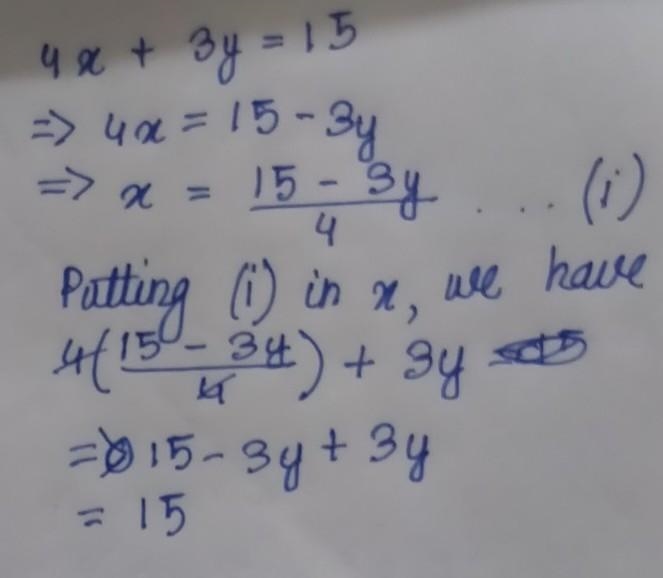 4x + 3y = 15
=> 4x = 15 - 3y
=> x = (15 - 3y)/4 .... (i)
Putting (i) in x, we have
4((15 - 3y)/4) + 3y
= 15 - 3y + 3y
= 15